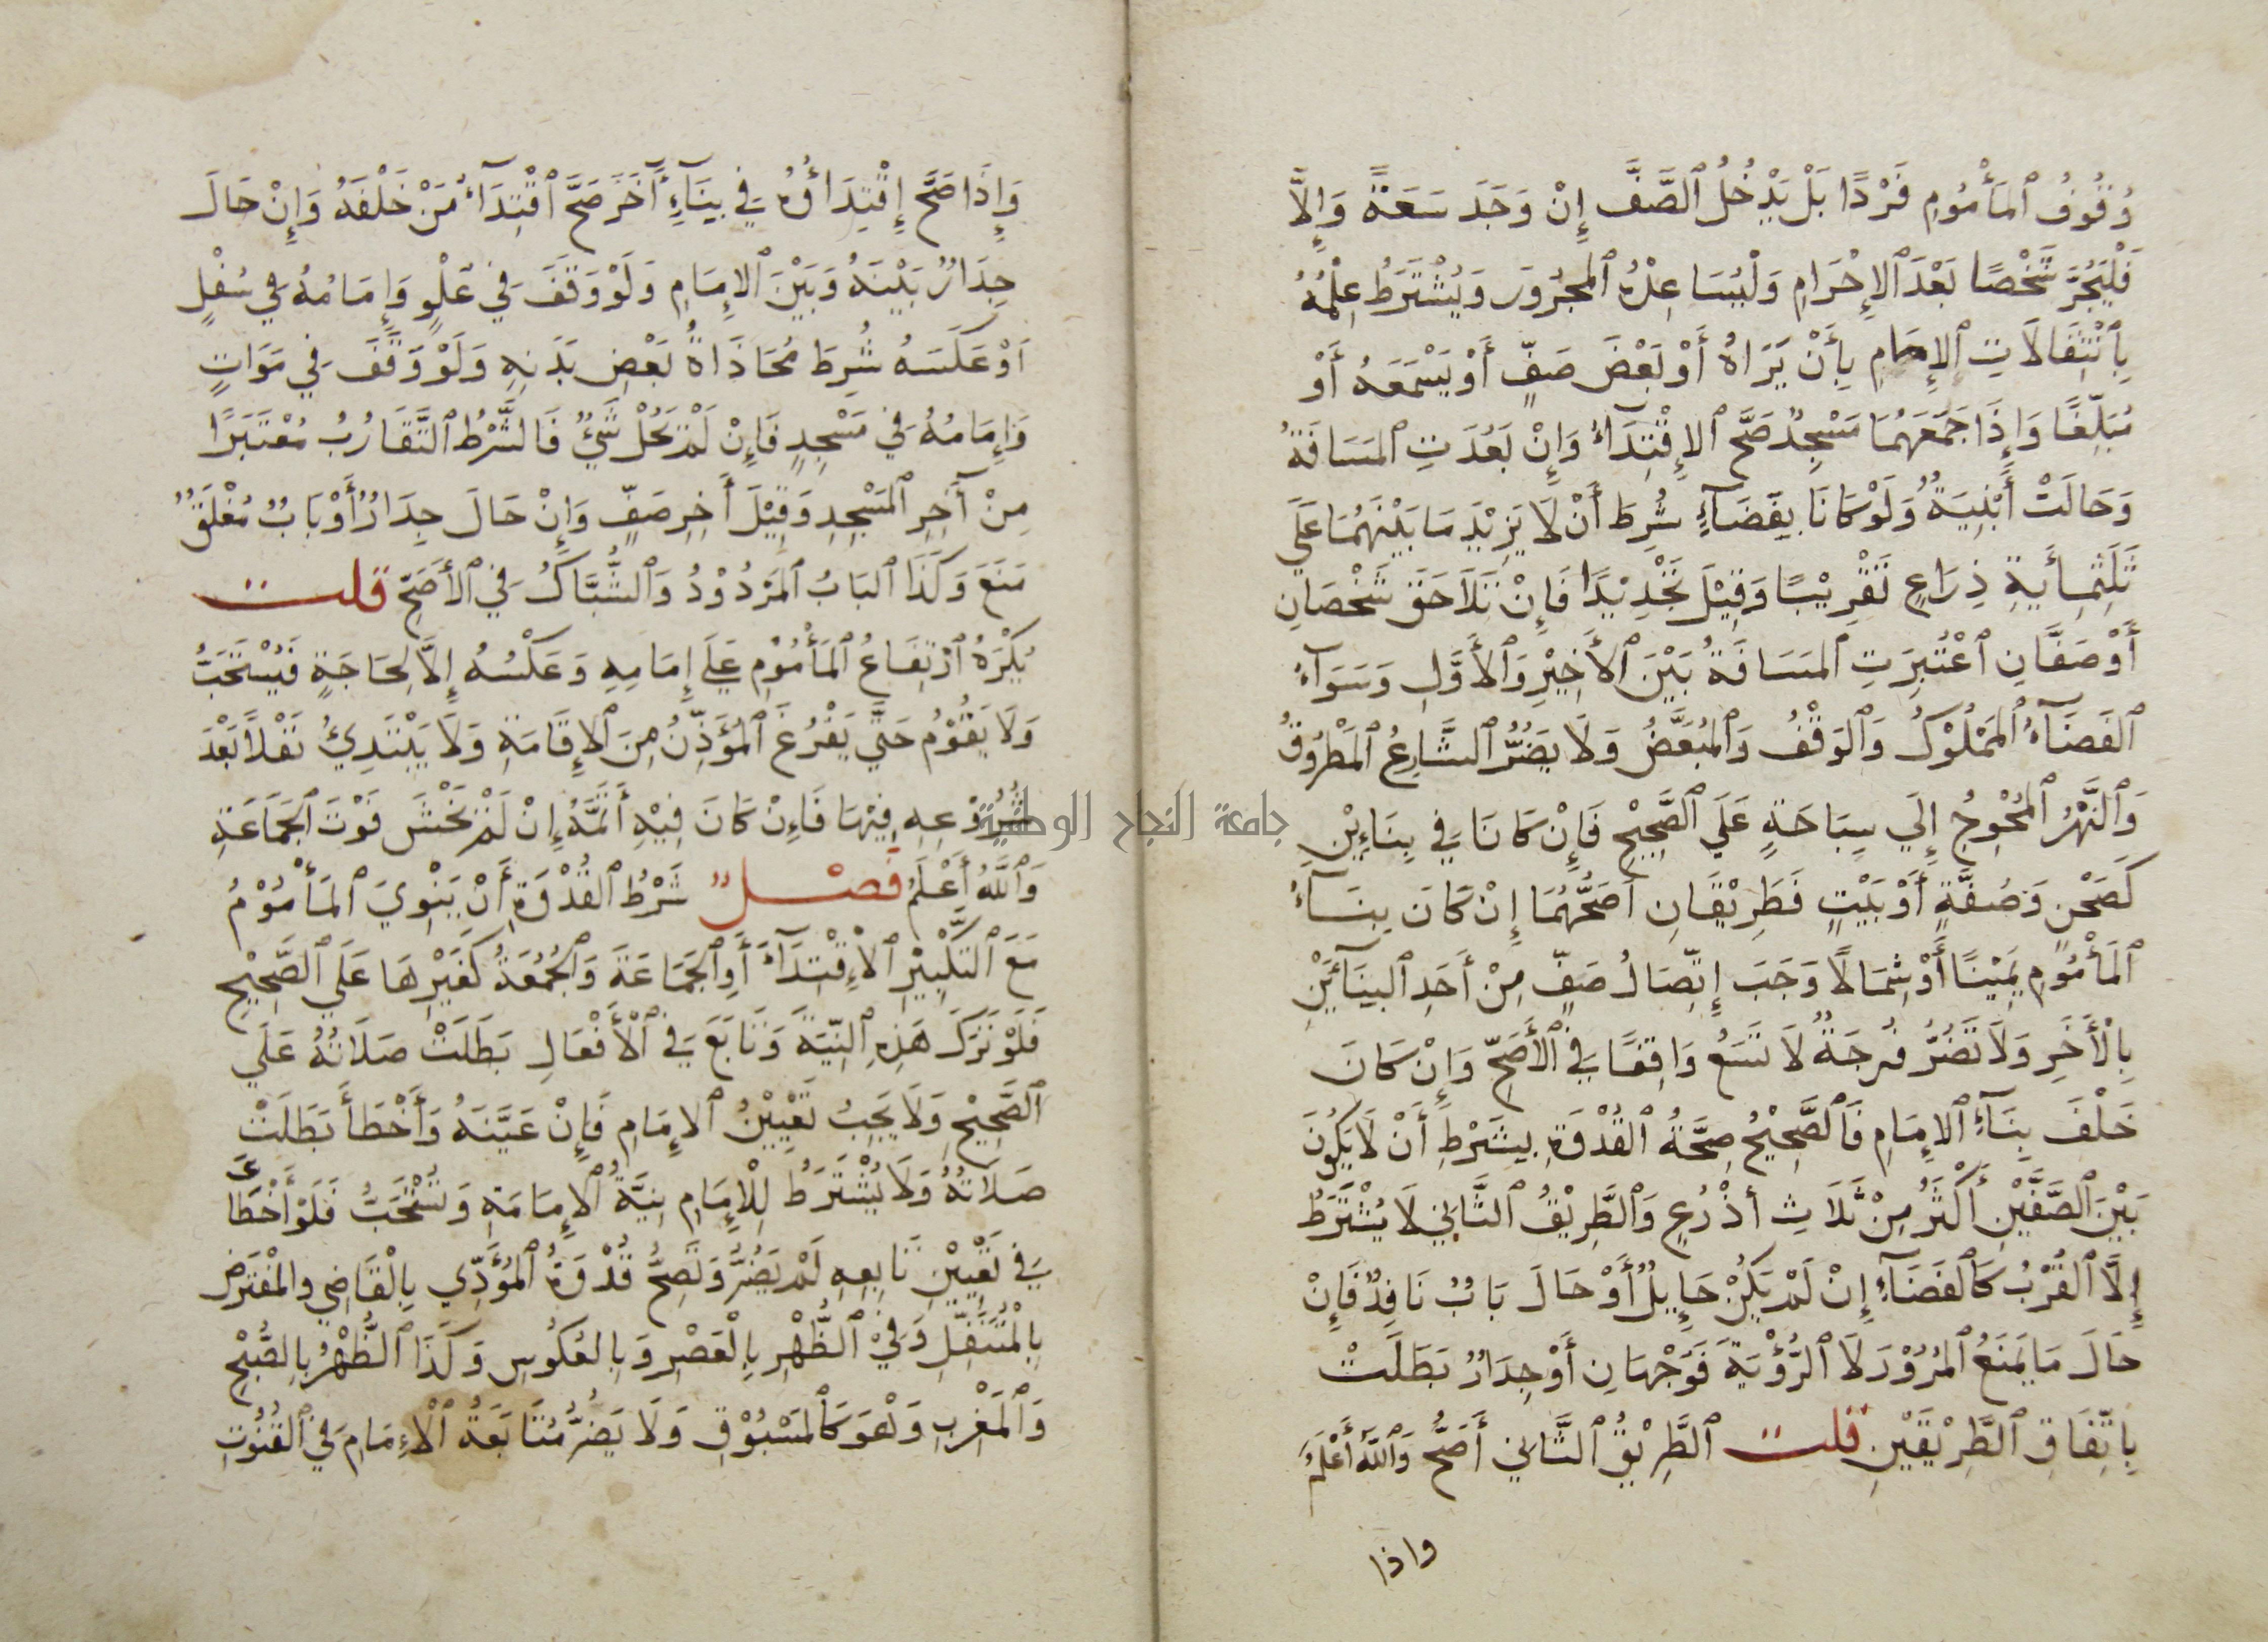 وُقُوفُ ٱلمَأْمُومِ فَرْدًا بَلْ يَدْخُلُ ٱلصَّفَّ إِنْ وَجَدَ سَعَةً وَإِلَّا
فَلْيَجُرَّ شَخْصًا بَعْدَ ٱلإِحْرَامِ وَلْيُسَاعِدْهُ ٱلمَجْرُورَ وَيُشْتَرَطُ عِلْمُهُ
بِٱنْتِقَالَاتِ ٱلإِمَامِ بِأَنْ يَرَاهُ أَوْ بَعْضَ صَفٍّ أَوْ يَسْمَعَهُ أَوْ
مُبَلِّغًا وَإِذَا جَمَعَهُمَا مَسْجِدٌ صَحَّ ٱلإِقْتِدَآءُ وَإِنْ بَعُدَتِ ٱلمَسَافَةُ
وَحَالَتْ أَبْنِيَةٌ وَلَوْ كَانَا بِفَضَآءٍ شُرِطَ أَنْ لَا يَزِيْدَ مَا بَيْنَهُمَا عَلَي
ثَلَثِمِائَةِ ذِرَاعٍ تَقْرِيْبًا وَقِيْلَ تَحْدِيْدًا فَإِنْ تَلَاحَقَ شَخْصَانِ
أَوْ صَفَّانِ ٱعْتُبِرَتِ ٱلمَسَافَةُ بَيْنَ ٱلأَخِيْرِ وَٱلأَوَّلِ وَسَوَآءٌ
ٱلفَضَآءُ ٱلمَمْلُوْكُ وَٱلوَقْفُ وَٱلمُبَعَّضُ وَلَا يَضُرُّ ٱلشَّارِعُ ٱلمَطْرُوقُ
وَٱلنَّهْرُ ٱلمُحْوِجُ إِلَي سِبَاحَةٍ عَلَي ٱلصَّحِيْحِ فَإِنْ كَانَا فِي بِنَاءَيْنِ
كَصَحْنٍ وَصُفَّةٍ أَوْ بَيْتٍ فَطَرِيْقَانِ أَصَحُّهُمَا إِنْ كَانَ بِنَآءُ
ٱلمَأْمُومِ يَمِيْنًا أَوْ شِمَالًا وَجَبَ إِتِّصَالُ صَفٍّ مِنْ أَحَدِ ٱلبِنَآئَيْنِ
بِالْأَخَرِ وَلَا تَضُرُّ فُرجَةٌ لَا تَسَعُ وَاقِفًا فِي ٱلأَصَحِّ وَإِنْ كَانَ
خَلْفَ بِنَآءِ ٱلإِمَامِ فَٱلصَّحِيْحُ صِحَّةُ ٱلقُدْوَةِ بِشَرْطِ أَنْ لَا يَكُوْنَ
بَيْنَ ٱلصَّفَّيْنِ أَكْثَرُ مِنْ ثَلَاثِ أَذْرُعٍ وَٱلطَّرِيْقُ ٱلثَّانِي لَا يُشْتَرَطُ
إِلَّا ٱلقُرْبُ كَٱلفَضَآءِ إِنْ لَمْ يَكُنْ حَايِلٌ أَوْ حَالَ بَابٌ نَافِذٌ فَإِنْ
حَالَ مَا يَمْنَعُ ٱلمُرُوْرَ لَا ٱلرُّؤْيَةَ فَوَجْهَانِ أَوْ جِدَارٌ بَطَلَتْ
بِاتِّفَاقِ ٱلطَّرِيْقَيْنِ قلت ٱلطَّرِيْقُ ٱلثَّانِي أَصَحُّ وَٱللَّهُ أَعْلَمُ
واذا
وَإِذَا صَحَّ إِقْتِدَاؤُهُ فِي بِنَآءٍ آخَرَ صَحَّ ٱقْتِدَآءُ مَنْ خَلْفَهُ وَإِنْ حَالَ
جِدَارٌ بَيْنَهُ وَبَيْنَ ٱلإِمَامِ وَلَوْ وَقَفَ فِي عُلْوٍ وَإِمَامُهُ فِي سُفْلٍ
أَوْ عَكْسَهُ شُرِطَ مُحَاذَاةُ بَعْضِ بَدَنِهِ وَلَوْ وَقَفَ فِي مَوَاتٍ
وَإِمَامُهُ فِي مَسْجِدٍ فَإِنْ لَمْ يَحُلْ شَيْءٌ فَالشَّرْطُ ٱلتَّقَارُبُ مُعْتَبَرًا
مِنْ آخِرِ ٱلمَسْجِدِ وَقِيْلَ أَخِرِ صَفٍّ وَإِنْ حَالَ جِدَارٌ أَوْ بَابٌ مُغْلَقٌ
مَنَعَ وَكَذَا ٱلبَابُ ٱلمَرْدُوْدُ وَٱلشُّبَّاكُ فِي ٱلأَصَحِّ قلت
يُكْرَهُ ٱرْتِفَاعُ ٱلمَأْمُوْمِ عَلَي إِمَامِهِ وَعَكْسُهُ إِلَّا لِحَاجَةٍ فَيُسْتَحَبُّ
وَلَا يَقُوْمُ حَتَّي يَفْرُغَ ٱلمُؤَذِّنُ مِنَ ٱلإِقَامَةِ وَلَا يَبْتَدِيُ نَفْلًا بَعْدَ
شُرُوْعِهِ فِيْهَا فَإِنْ كَانَ فِيْهِ أَتَمَّهُ إِنْ لَمْ يَخْشَ فَوْتَ ٱلجَمَاعَةِ
وَٱللَّهُ أَعْلَمُ فَصْلٌ شَرْطُ ٱلقُدْوَةِ أَنْ يَنْوِيَ ٱلمَأْمُوْمُ
مَعَ ٱلتَّكْبِيْرِ ٱلْإِقْتِدَآءَ أَوِ ٱلجَمَاعَةَ وَٱلجُمُعَةُ كَغَيْرِهَا عَلَي ٱلصَّحِيْحِ
فَلَوْ تَرَكَ هَذِهِ ٱلنِّيَّةَ وَتَابَعَ فِي ٱلْأَفْعَالِ بَطَلَتْ صَلَاتُهُ عَلَي
ٱلصَّحِيْحِ وَلَا يَجِبُ تَعْيِيْنُ ٱلإِمَامِ فَإِنْ عَيَّنَهُ وَأَخْطَأَ بَطَلَتْ
صَلَاتُهُ وَلَا يُشْتَرَطُ لِلْإِمَامِ نِيَّةُ ٱلإِمَامَةِ وَتُسْتَحَبُّ فَلَوْ أَخْطَأَ
فِي تَعْيِيْنِ تَابِعِهِ لَمْ يَضُرَّ وَتَصِحُّ قُدْوَةُ ٱلمُؤَدِّي بِالْقَاضِي والمُفْتَرِضِ
بِالْمُتَنَفِّلِ وَفِي ٱلظُّهْرِ بِالْعَصْرِ وَبِالعُكُوسِ وَكَذَا ٱلظُّهْرُ بِالصُّبْحِ
وَٱلمَغْرِبِ وَهُوَ كَٱلمَسْبُوْقِ وَلَا يَضُرُّ مُتَابَعَةُ ٱلْإِمَامِ فِي ٱلقُنُوْتِ
جامعة النجاح الوطنية